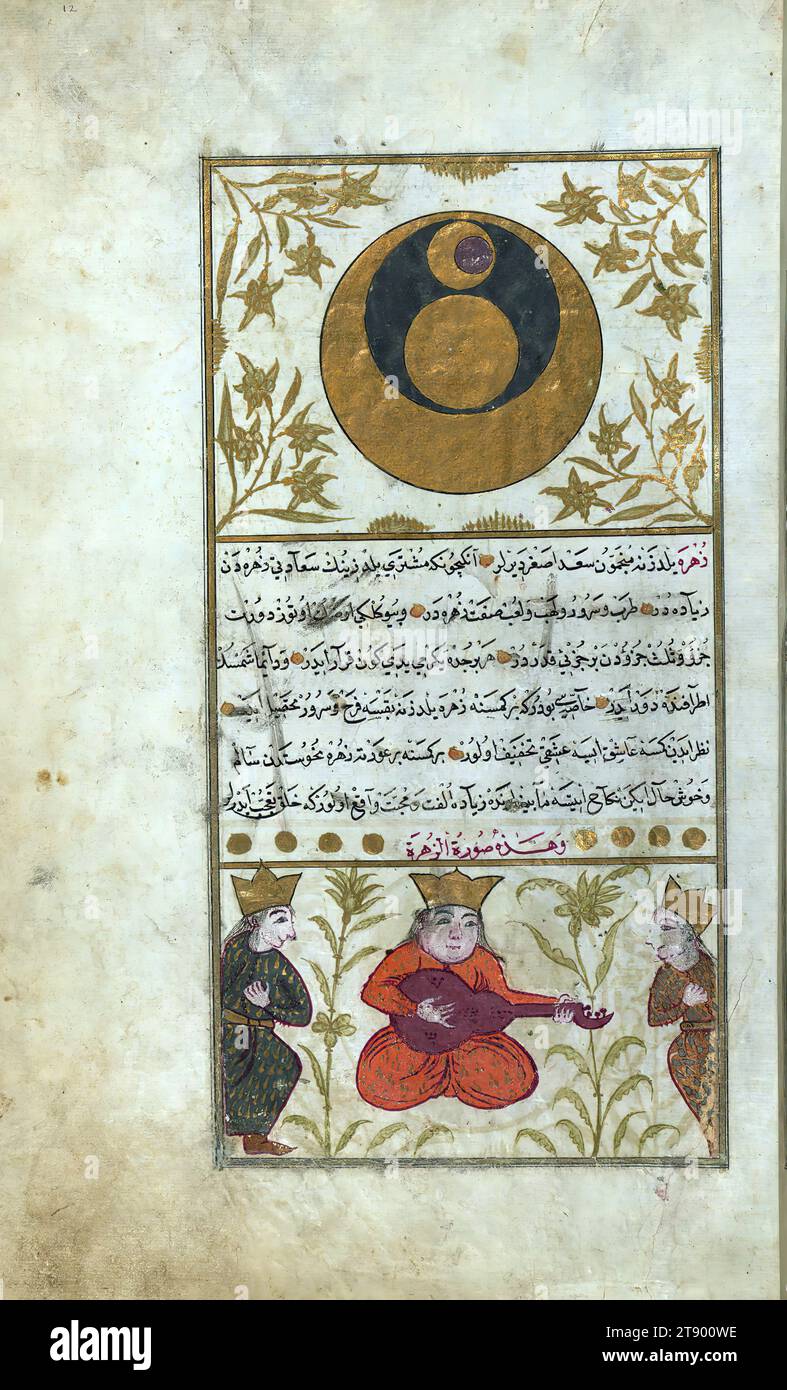 12
زهره يلدزنه منجمون سعد اصغر ديرلر آنكچونكه مشتري يلدزينك سعادتي زهره دن
زياده در طرب و سرور و لهو و لعب صفت زهره در و بيوكلكي ارضك اوتوز دورت
جزؤ و ثلث جزؤدن بر جزؤي قدردر هر برجده يكرمي يدي كون قرار ايدر و دائما شمسك
اطرافنده دور ايدر خاصيتي بودركه بر كمسنه زهره يلدزنه بقسه فرح و سرور تحصيل ايدر
نظر ايدن كمسه عاشق ايسه عشقي تخفيف اولور بر كمسنه بر عورته زهره نحوستدن سالم
و خوش حال ايكن نكاح ايتسه مابينلرنده زياده الفت و محبت واقع اولور كه خلق تعجب ايدرلر
وهذه صورة الزهرة
alamy
Image ID: 2T900WE
www.alamy.com